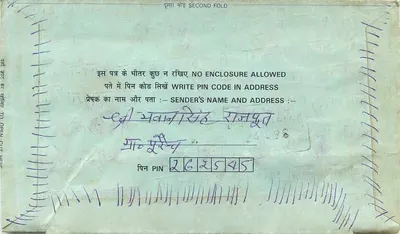 दूसरा मोड़ SECOND FOLD
इस पत्र के भीतर कुछ न रखिए NO ENCLOSURE ALLOWED
पते में पिन कोड लिखें WRITE PIN CODE IN ADDRESS
प्रेषक का नाम और पता :– SENDER'S NAME AND ADDRESS :–
सिंह राजपूत
ग्रा०
पिन PIN 262545